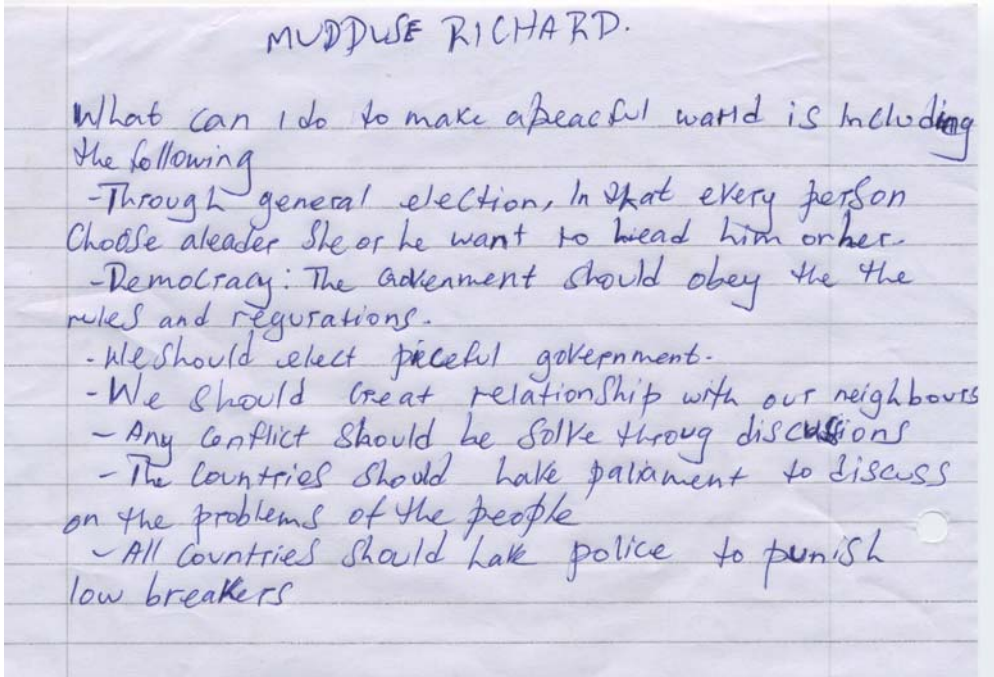 MUDDUSE RICHARD.
What can I do to make apeacful warld is Including
the following
-Through general election, In that every person
Choose aleader She or he want to head him or her.
-Democracy: The Govenment should obey the the
rules and regurations.
- We should elect piceful government.
- We should Creat relationship with our neighbours
- Any Conflict should be Solve throug discussions
- The Countries should have paliament to discuss
on the problems of the people
- All Countries should have police to punish
low breakers